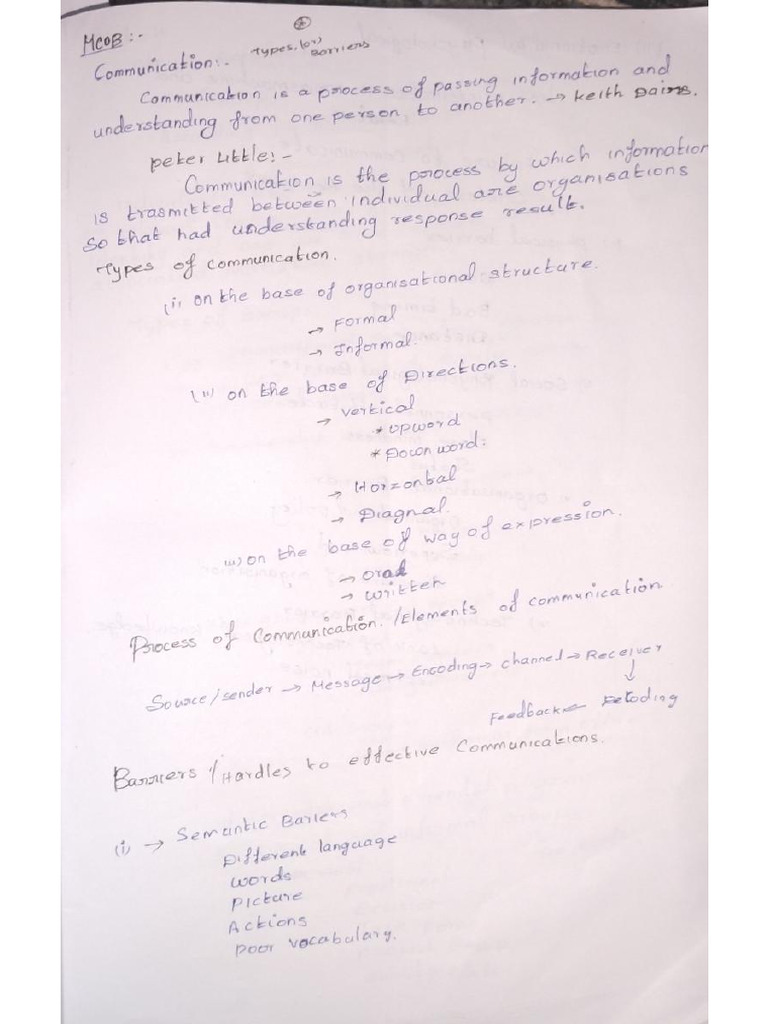 MCOB :-
Types, (or) Barriers
Communication :-
Communication is a process of passing information and
understanding from one person, to another. → Keith Dains.
peter Little :-
Communication is the process by which information
is trasmitted between individual are organisations
So that had understanding response result.
Types of communication.
(i) on the base of organisational structure.
→ Formal
→ Informal.
(ii) on the base of Directions.
→ vertical
* upword
* Down word:
→ Horzonbal
→ Diagnal.
iii) on the base of way of expression.
→ oral
→ written
Process of Communication. /Elements of communication
Source/sender → Message → Encoding → channel → Receiver
↓
Feedback ←
Barriers / Hardles to effective Communications.
(i) → Semantic Bariers
Different language
words
picture
Actions
poor vocabulary.